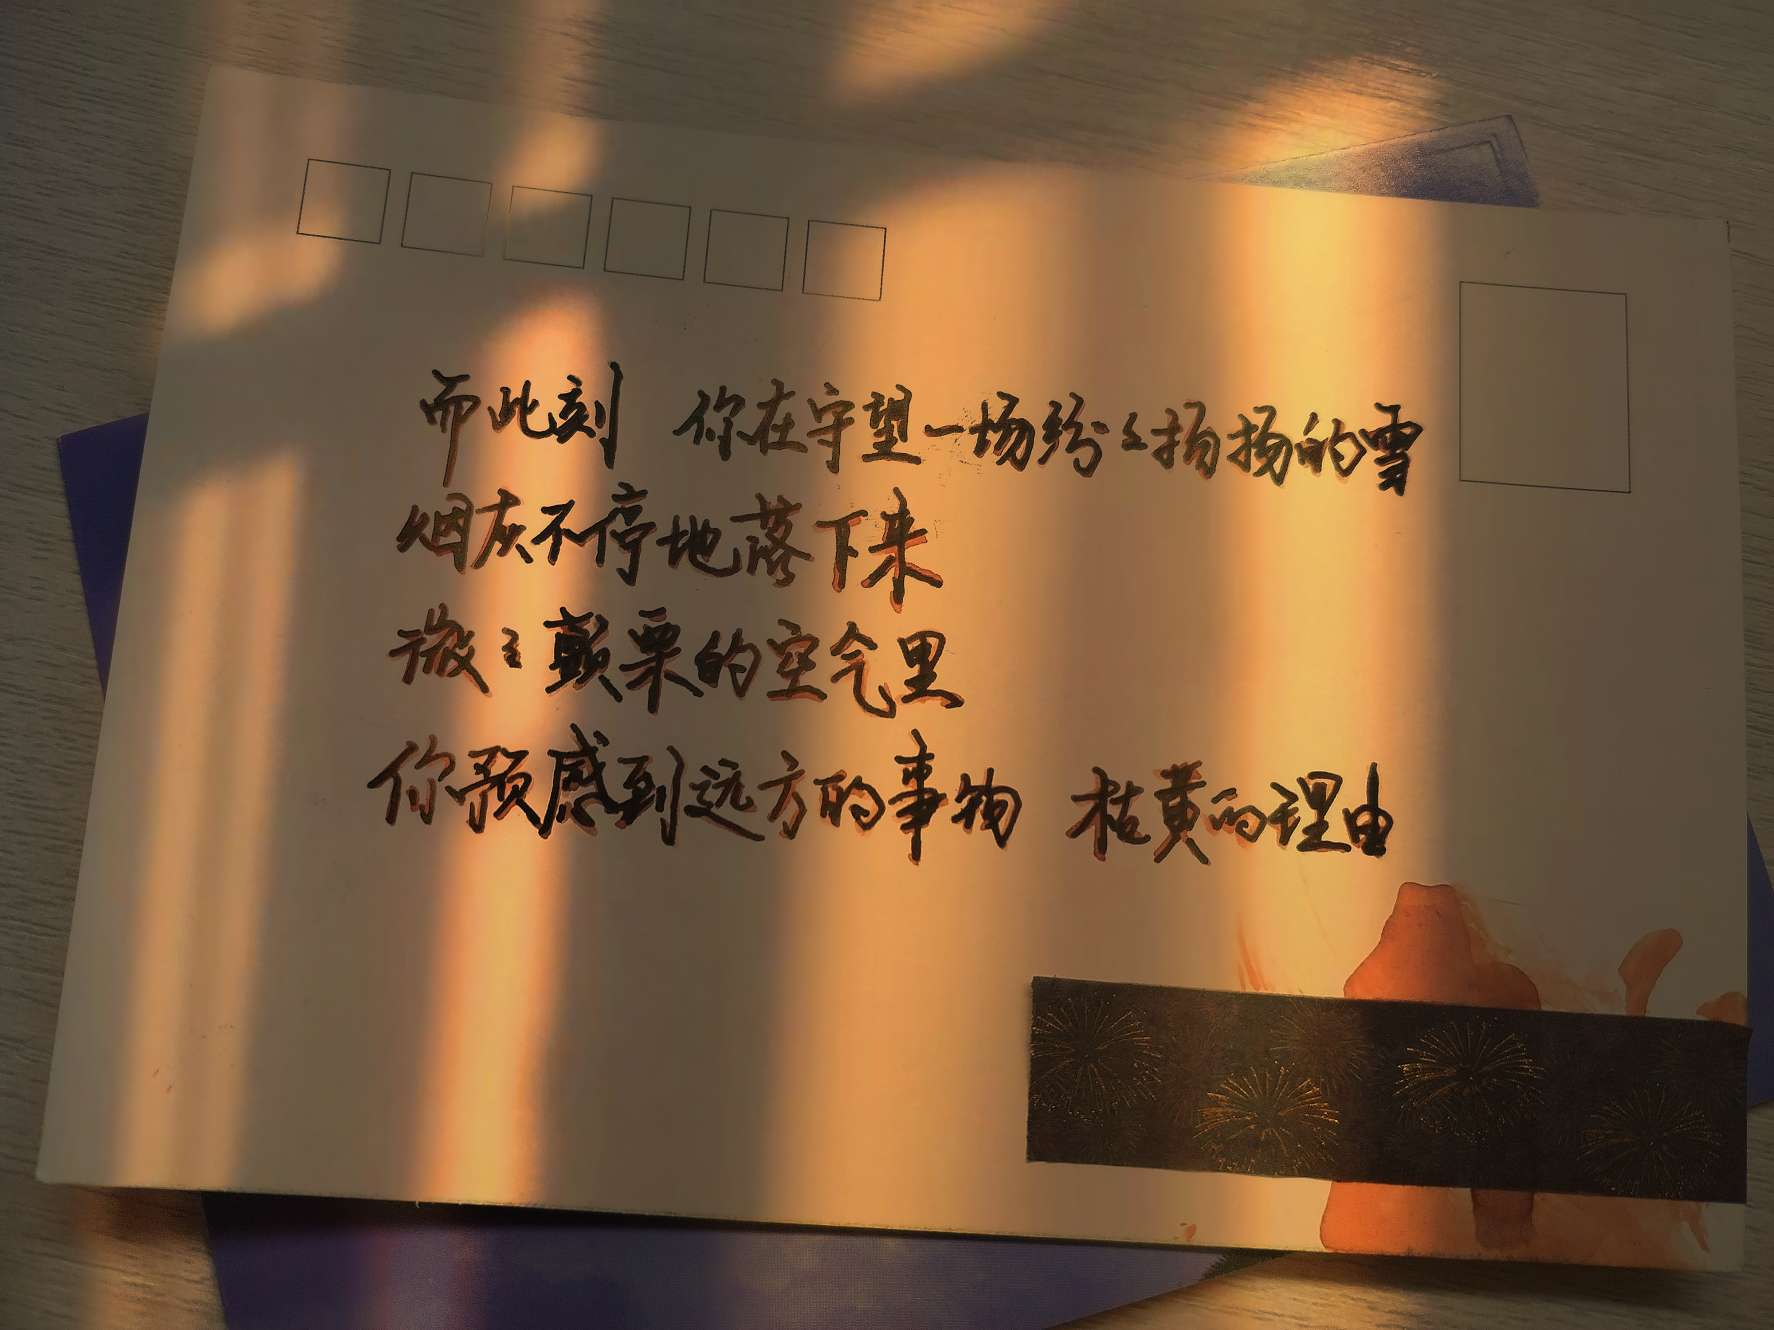 而此刻 你在守望一场纷纷扬扬的雪
烟灰不停地落下来
微微颤栗的空气里
你预感到远方的事物 枯黄的理由